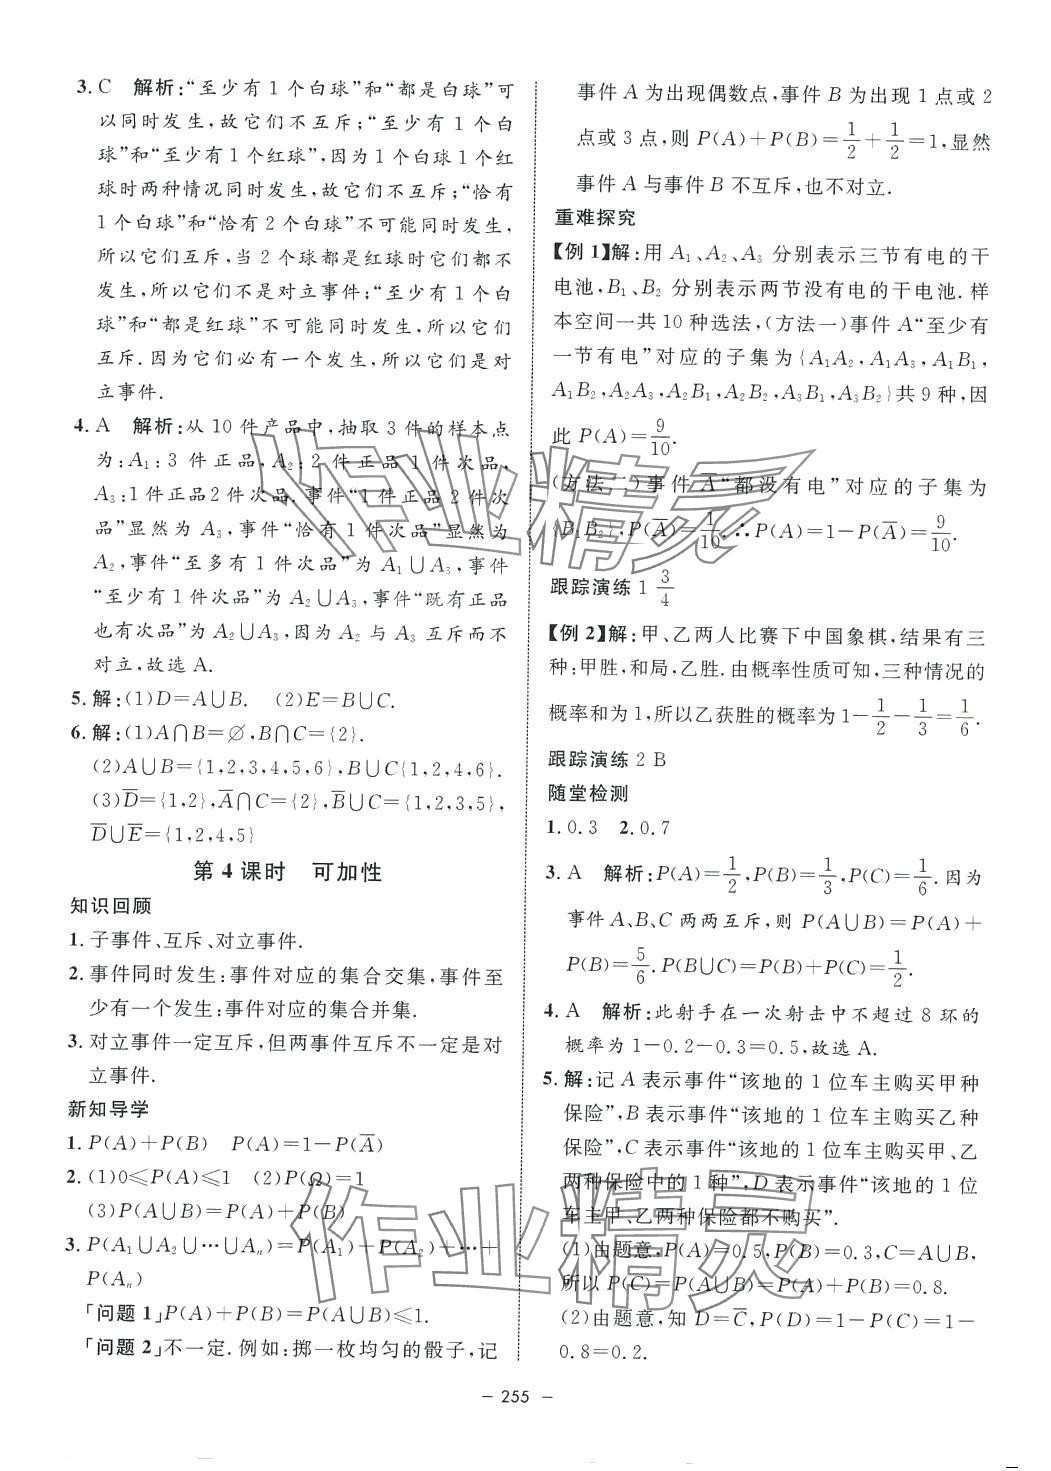 3. C　解析:“至少有 1 个白球”和“都是白球”可
以同时发生,故它们不互斥;“至少有 1 个白
球”和“至少有 1 个红球”,因为 1 个白球 1 个红
球时两种情况同时发生,故它们不互斥;“恰有
1 个白球”和“恰有 2 个白球”不可能同时发生,
所以它们互斥,当 2 个球都是红球时它们都不
发生,所以它们不是对立事件;“至少有 1 个白
球”和“都是红球”不可能同时发生,所以它们
互斥.因为它们必有一个发生,所以它们是对
立事件.
4. A　解析:从 10 件产品中,抽取 3 件的样本点
为:A₁:3 件正品,A₂:2 件正品 1 件次品,
A₃:1件正品2件次品.事件“1件正品 2 件次
品”显然为 A₃,事件“恰有 1 件次品”显然为
A₂,事件“至多有 1 件次品”为 A₁∪A₃,事件
“至少有 1 件次品”为 A₂∪A₃,事件“既有正品
也有次品”为 A₂∪A₃,因为 A₂ 与 A₃ 互斥而不
对立,故选 A.
5. 解:(1)D=A∪B.　(2)E=B∪C.
6. 解:(1)A∩B=∅,B∩C={2}.
(2)A∪B={1,2,3,4,5,6},B∪C{1,2,4,6}.
(3)D̅={1,2},A̅∩C={2},B̅∪C={1,2,3,5},
D̅∪E̅={1,2,4,5}
第 4 课时　可加性
知识回顾
1. 子事件、互斥、对立事件.
2. 事件同时发生:事件对应的集合交集,事件至
少有一个发生:事件对应的集合并集.
3. 对立事件一定互斥,但两事件互斥不一定是对
立事件.
新知导学
1. P(A)+P(B)　P(A)=1-P(A̅)
2. (1)0≤P(A)≤1　(2)P(Ω)=1
(3)P(A∪B)=P(A)+P(B)
3. P(A₁∪A₂∪…∪Aₙ)=P(A₁)+P(A₂)+…+
P(Aₙ)
「问题 1」P(A)+P(B)=P(A∪B)≤1.
「问题 2」不一定.例如:掷一枚均匀的骰子,记
事件 A 为出现偶数点,事件 B 为出现 1 点或 2
点或 3 点,则 P(A)+P(B)=1/2+1/2=1,显然
事件 A 与事件 B 不互斥,也不对立.
重难探究
【例 1】解:用 A₁、A₂、A₃ 分别表示三节有电的干
电池,B₁、B₂ 分别表示两节没有电的干电池.样
本空间一共 10 种选法,(方法一)事件 A“至少有
一节有电”对应的子集为{A₁A₂,A₁A₃,A₁B₁,
A₁B₂,A₂A₃,A₂B₁,A₂B₂,A₃B₁,A₃B₂}共 9 种,因
此 P(A)=9/10.
(方法二)事件 A̅“都没有电”对应的子集为
{B₁B₂},P(A̅)=1/10,∴P(A)=1-P(A̅)=9/10.
跟踪演练 1　3/4
【例 2】解:甲、乙两人比赛下中国象棋,结果有三
种:甲胜,和局,乙胜.由概率性质可知,三种情况的
概率和为 1,所以乙获胜的概率为 1-1/2-1/3=1/6.
跟踪演练 2 B
随堂检测
1. 0.3　2. 0.7
3. A　解析:P(A)=1/2,P(B)=1/3,P(C)=1/6.因为
事件 A、B、C 两两互斥,则 P(A∪B)=P(A)+
P(B)=5/6.P(B∪C)=P(B)+P(C)=1/2.
4. A　解析:此射手在一次射击中不超过 8 环的
概率为 1-0.2-0.3=0.5,故选 A.
5. 解:记 A 表示事件“该地的 1 位车主购买甲种
保险”,B 表示事件“该地的 1 位车主购买乙种
保险”,C 表示事件“该地的 1 位车主购买甲、乙
两种保险中的 1 种”,D 表示事件“该地的 1 位
车主甲、乙两种保险都不购买”.
(1)由题意,P(A)=0.5,P(B)=0.3,C=A∪B,
所以 P(C)=P(A∪B)=P(A)+P(B)=0.8.
(2)由题意,知 D=C̅,P(D)=1-P(C)=1-
0.8=0.2.
- 255 -
作业精灵
作业精灵